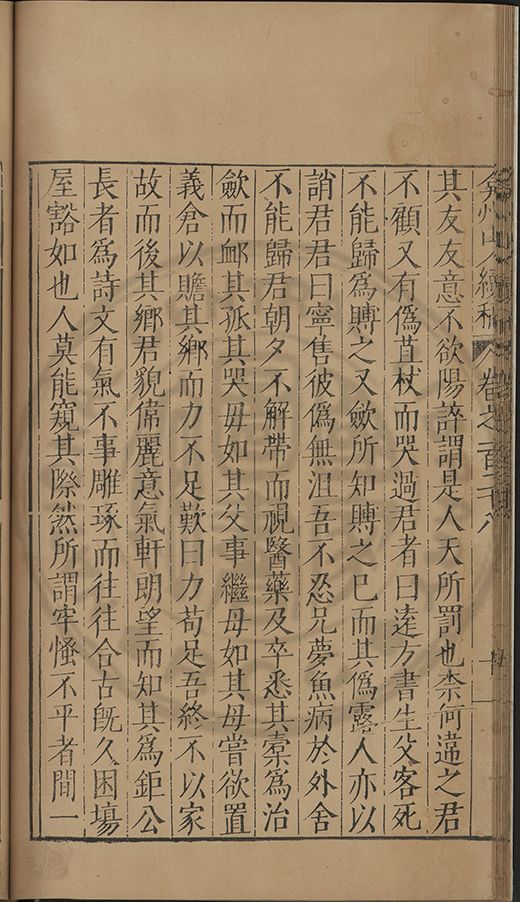 弇州山人續稿 卷之一百二十八
其友友意不欲陽誶謂是人天所罰也柰何違之君
不顧又有偽苴杖而哭過君者曰遠方書生父客死
不能歸為賻之又歛所知賻之已而其偽露人亦以
誚君君曰寧售彼偽無沮吾不忍兄夢魚病於外舍
不能歸君朝夕不解帶而視醫藥及卒悉其橐為治
歛而卹其孤其哭毋如其父事繼母如其母嘗欲置
義倉以贍其鄉而力不足歎曰力苟足吾終不以家
故而後其鄉君貌偉麗意氣軒朗望而知其為鉅公
長者為詩文有氣不事雕琢而往往合古旣久困塲
屋豁如也人莫能窺其際然所謂牢慅不平者間一